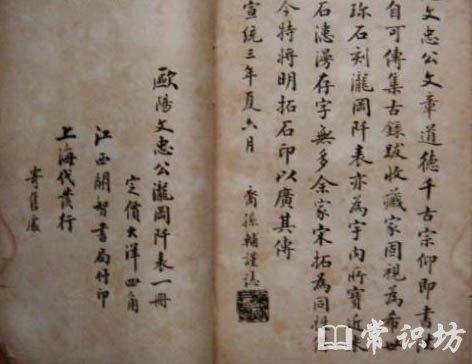 文忠公文章道德千古宗仰即書
自可傳集古錄跋收藏家固視為希世
珍石刻瀧岡阡表亦為宇內所寶近來
石漶漫存字無多余家宋拓為同
今特將明拓石印以廣其傳
宣統三年夏六月 裔孫輔謹誌
歐陽文忠公瀧岡阡表一冊
定價大洋四角
江西開智書局付印
上海代發行
寄售處
常識坊